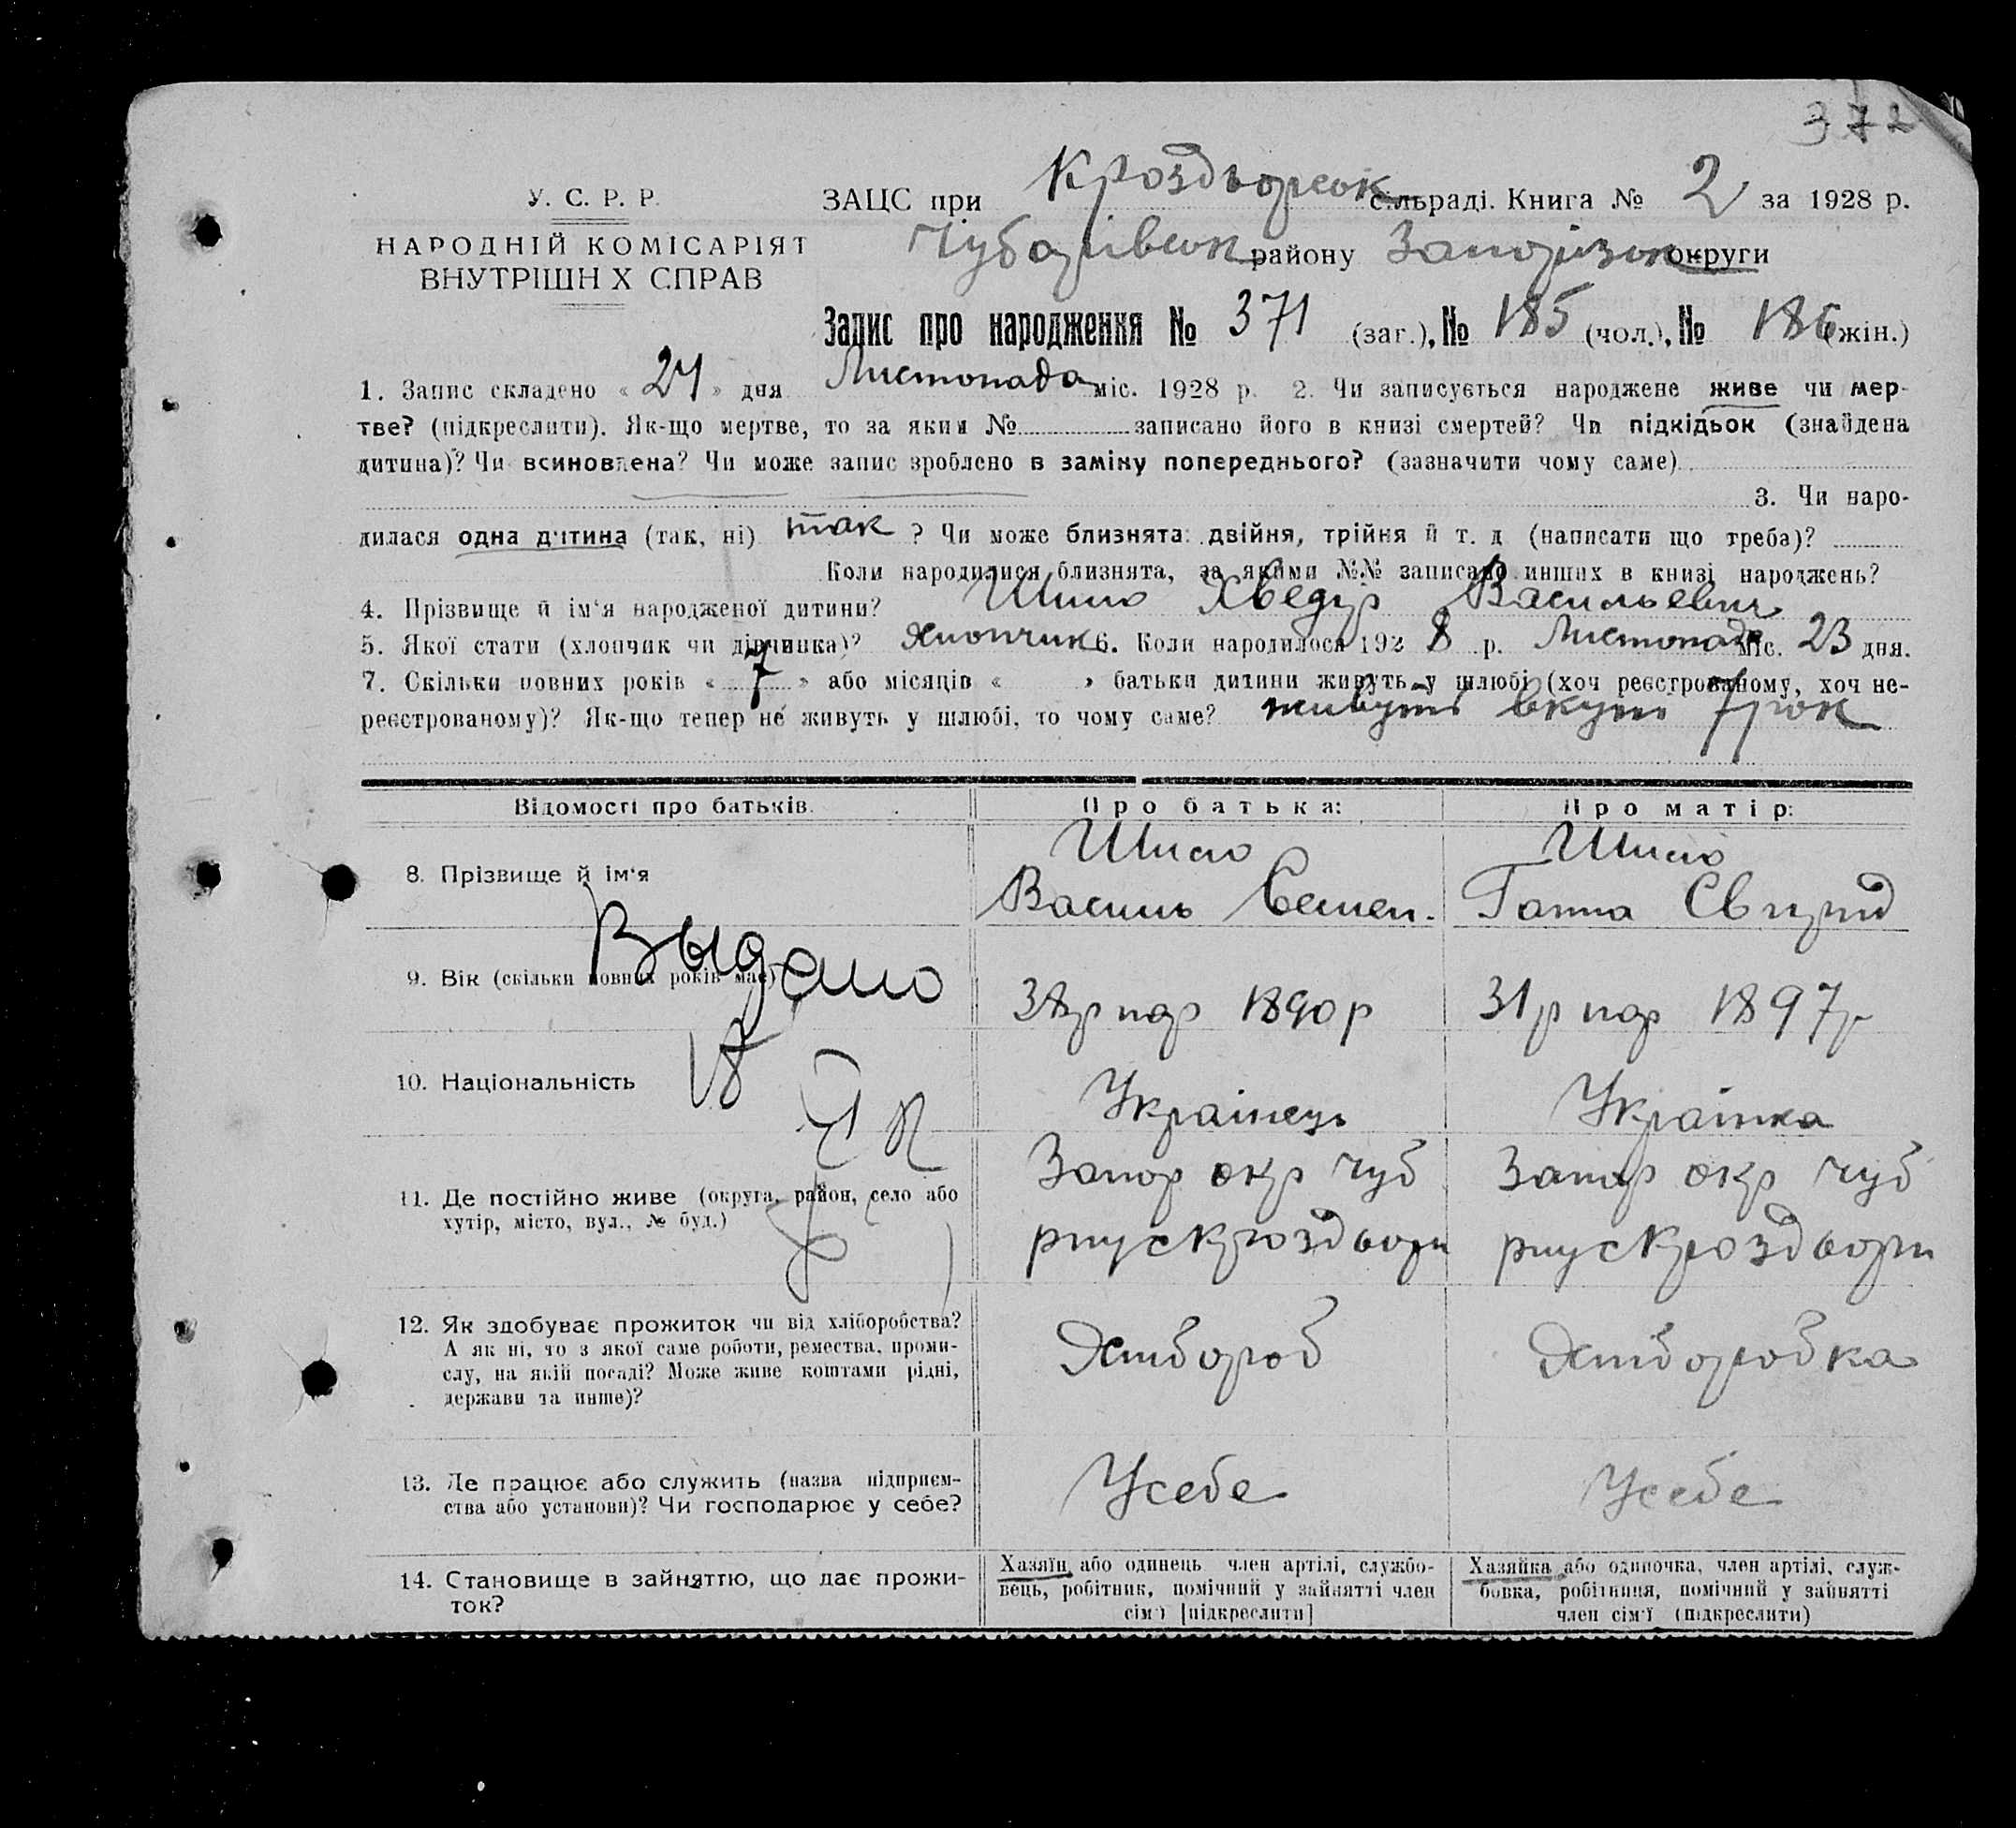 372
У. С. Р. Р.
НАРОДНІЙ КОМІСАРІЯТ
ВНУТРІШН Х СПРАВ
ЗАЦС при Кроздворськ сільраді. Книга № 2 за 1928 р.
Чубарівськ району Запорізьк округи
Запис про народження № 371 (заг.), № 185 (чол.), № 186 (жін.)
1. Запис складено « 24 » дня Листопада міс. 1928 р. 2. Чи записується народжене живе чи мер-
тве? (підкреслити). Як-що мертве, то за яким № записано його в книзі смертей? Чи підкідьок (знайдена
дитина)? Чи всиновлена? Чи може запис зроблено в заміну попереднього? (зазначити чому саме)
3. Чи наро-
дилася одна дитина (так, ні) так ? Чи може близнята: двійня, трійня й т. д (написати що треба)?
Коли народилися близнята, за якими №№ записано инших в книзі народжень?
4. Прізвище й ім'я народженої дитини? Шило Хведур Васильевич
5. Якої стати (хлопчик чи дівчинка)? Хлопчик 6. Коли народилося 192 8 р. Листопада міс. 23 дня.
7. Скільки повних років « 7 » або місяців « » батьки дитини живуть у шлюбі (хоч реєстрованому, хоч не-
реєстрованому)? Як-що тепер не живуть у шлюбі, то чому саме? живуть вкупі 7 рок
Відомості про батьків.
Про батька:
Про матір:
8. Прізвище й ім'я
Шило
Василь Семен.
Шило
Ганна Свирид
9. Вік (скільки повних років має)
38р нар 1890р
31р нар 1897р
Выдано
10. Національність
Українець
Українка
11. Де постійно живе (округа, район, село або
хутір, місто, вул., № буд.)
Запор окр Чуб
рну с Кроздвори
Запор окр Чуб
рну с Кроздвори
12. Як здобуває прожиток чи від хліборобства?
А як ні, то з якої саме роботи, ремества, проми-
слу, на якій посаді? Може живе коштами рідні,
держави та инше)?
Хлібороб
Хліборобка
13. Де працює або служить (назва підприєм-
ства або установи)? Чи господарює у себе?
Усебе
Усебе
14. Становище в зайняттю, що дає прожи-
ток?
Хазяїн або одинець член артілі, службо-
вець, робітник, помічний у зайнятті член
сім'ї [підкреслити]
Хазяйка або одиночка, член артілі, служ-
бовка, робітниця, помічний у зайнятті
член сім'ї (підкреслити)